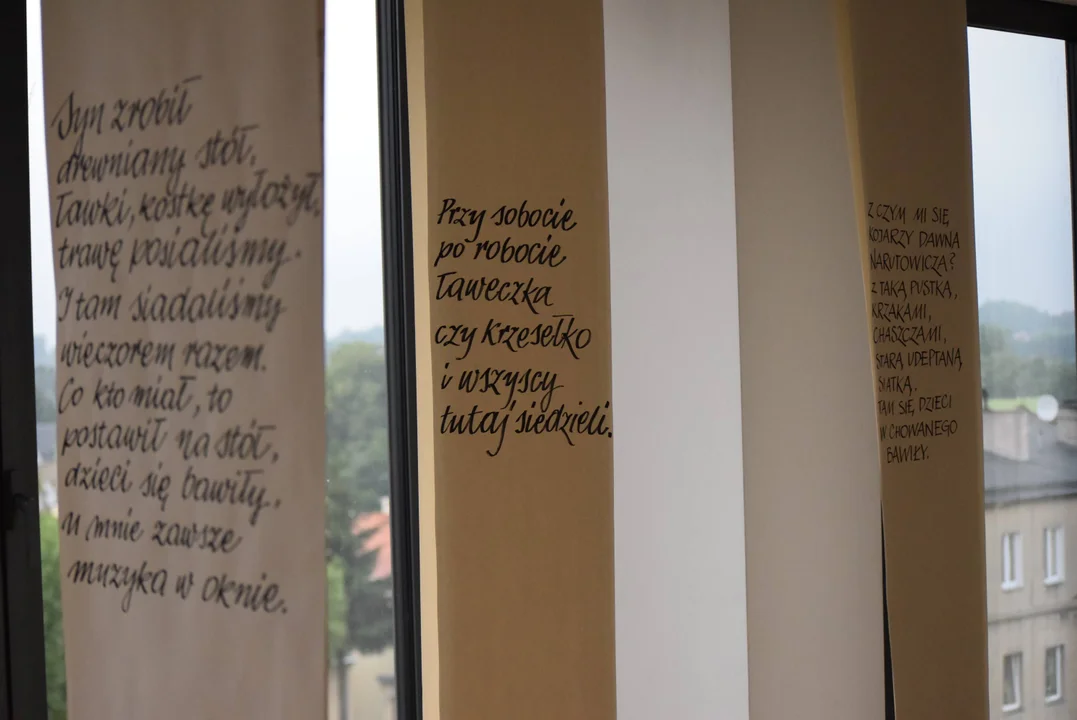 Syn zrobił
drewniany stół,
ławki, kostkę wyłożył,
trawę posialiśmy.
I tam siadaliśmy
wieczorem razem.
Co kto miał, to
postawił na stół,
dzieci się bawiły,
u mnie zawsze
muzyka w oknie.
Przy sobocie
po robocie
ławeczka
czy krzesełko
i wszyscy
tutaj siedzieli.
Z CZYM MI SIĘ
KOJARZY DAWNA
NARUTOWICZA?
Z TAKĄ PUSTKĄ,
KRZAKAMI,
CHASZCZAMI,
STARĄ, UDEPTANĄ
SIATKĄ.
TAM SIĘ DZIECI
W CHOWANEGO
BAWIŁY.